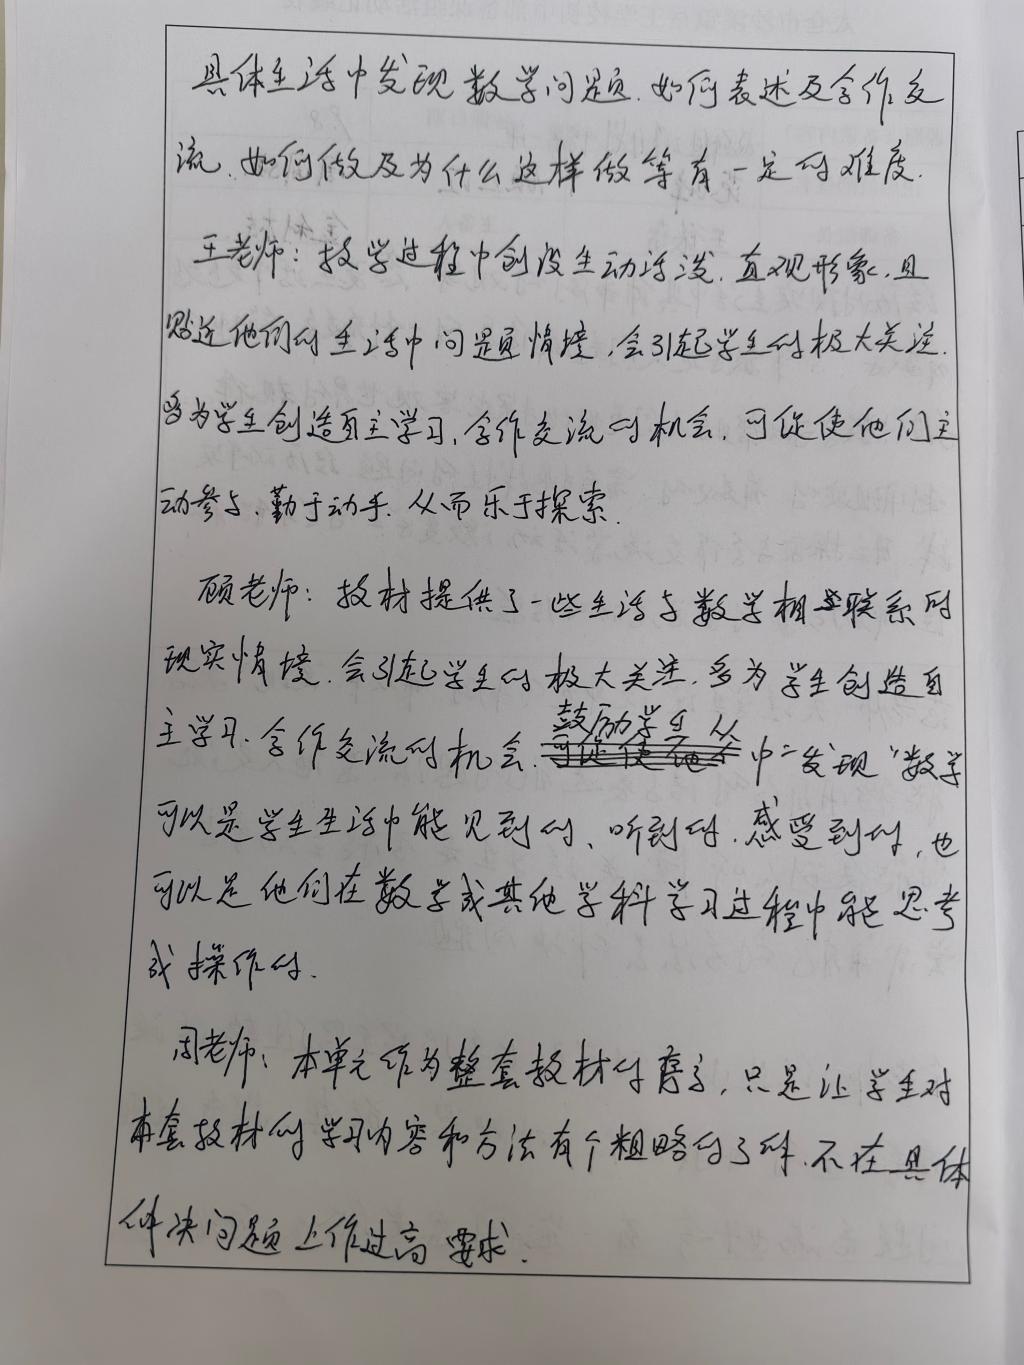 具体生活中发现数学问题.如何表述及合作交
流、如何做及为什么这样做等有一定的难度.
王老师：教学过程中创设生动活泼、直观形象、且
贴近他们的生活中问题情境，会引起学生的极大关注.
多为学生创造自主学习、合作交流的机会，可促使他们主
动参与、勤于动手、从而乐于探索.
顾老师：教材提供了一些生活与数学相联系的
现实情境.会引起学生的极大关注.多为学生创造自
主学习.合作交流的机会.鼓励学生从
中"发现"数学
可以是学生生活中能见到的、听到的.感受到的，也
可以是他们在数学或其他学科学习过程中能思考
或操作的.
周老师：本单元作为整套教材的序言，只是让学生对
本套教材的学习内容和方法有个粗略的了解.不在具体
解决问题上作过高要求.